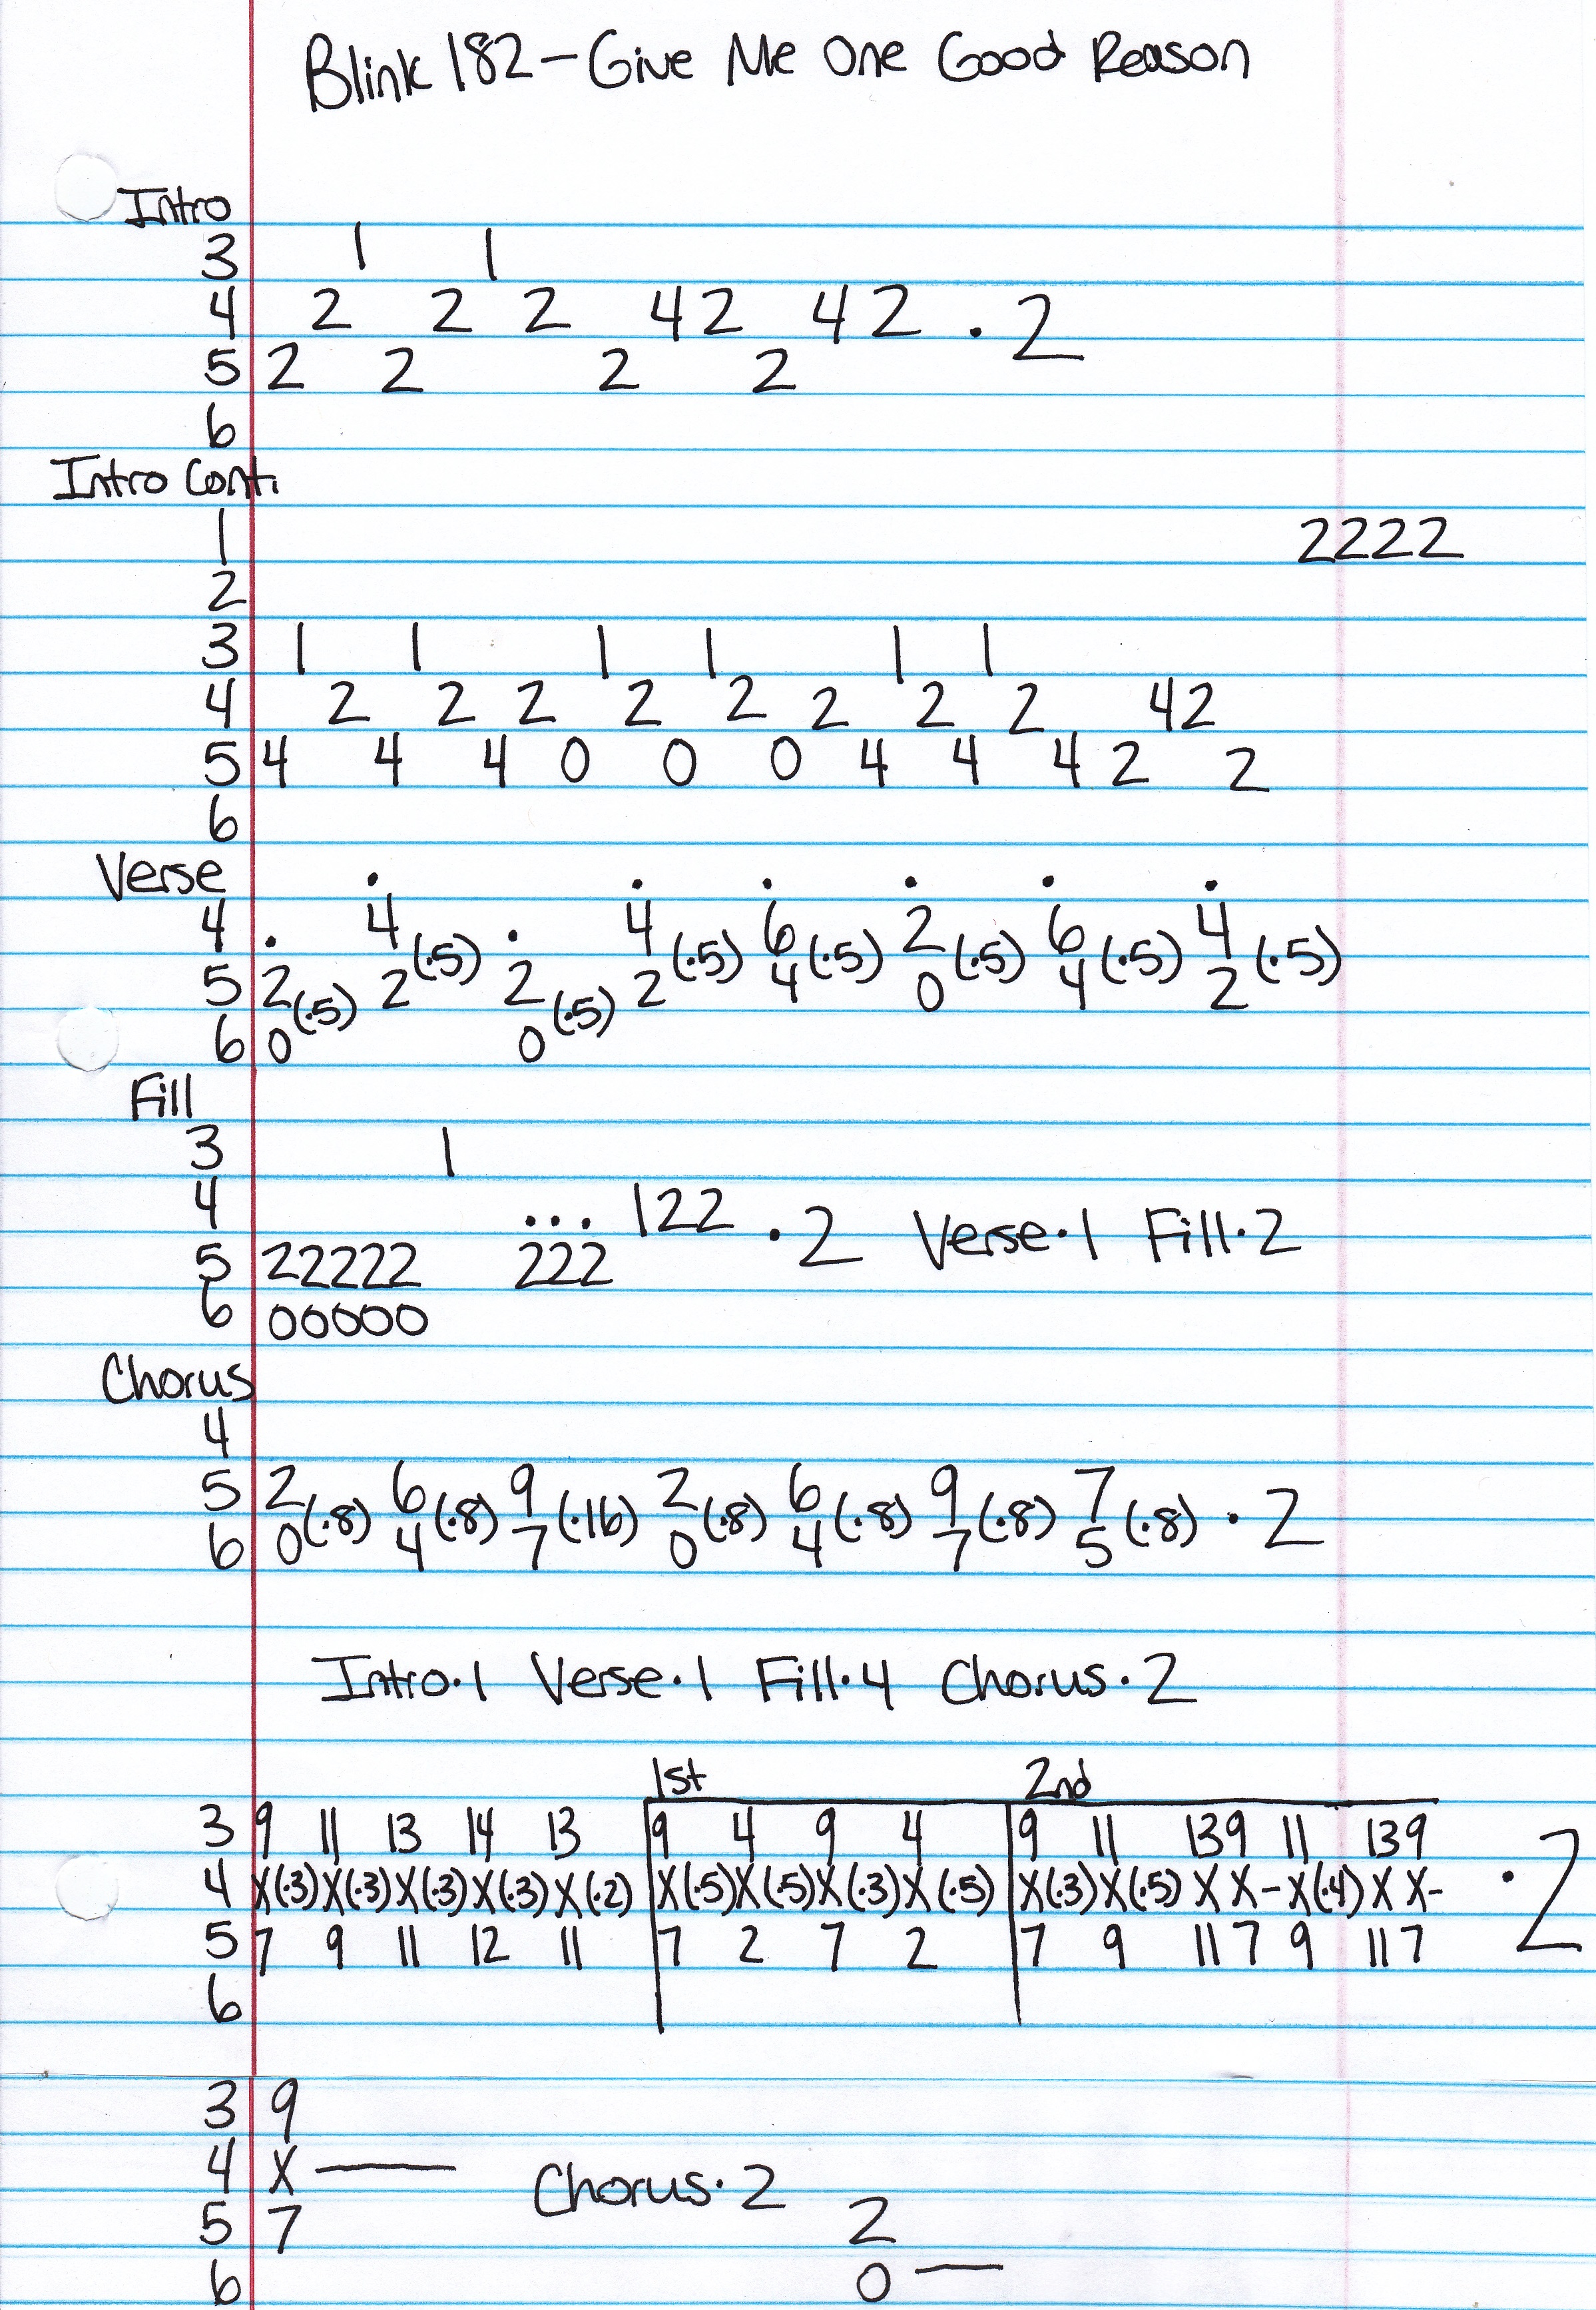 Blink 182 - Give Me One Good Reason
Intro
3 1 1
4 2 2 2 42 42 . 2
5 2 2 2 2
6
Intro Cont.
1 2222
2
3 1 1 1 1 1 1
4 2 2 2 2 2 2 2 2 42
5 4 4 4 0 0 0 4 4 4 2 2
6
Verse . . . . . .
4 . 4 (.5) . 4 (.5) 6 (.5) 2 (.5) 6 (.5) 4 (.5)
5 2 (.5) 2 2 (.5) 2 4 0 4 2
6 0 0
Fill
3 1
4 ... 122 . 2 Verse . 1 Fill . 2
5 22222 222
6 00000
Chorus
4
5 2 (.8) 6 (.8) 9 (.16) 2 (.8) 6 (.8) 9 (.8) 7 (.8) . 2
6 0 4 7 0 4 7 5
Intro . 1 Verse . 1 Fill . 4 Chorus . 2
1st 2nd
3 9 11 13 14 13 9 4 9 4 9 11 139 11 139
4 X(.3)X(.3)X(.3)X(.3)X(.2) X(.5)X(.5)X(.3)X(.5) X(.3)X(.5) X X-X(.4)X X- . 2
5 7 9 11 12 11 7 2 7 2 7 9 117 9 117
6
3 9
4 X — Chorus . 2
5 7 2
6 0 —